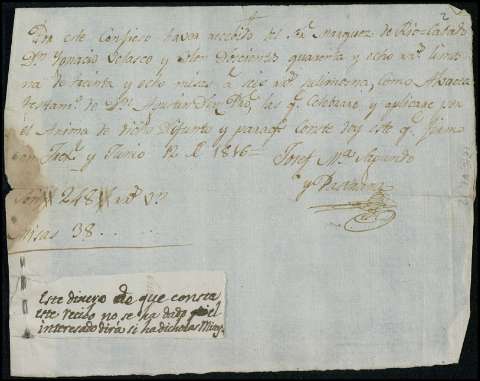 Por este confieso haver recebido del Sr. Marquez de
Dn. Ignacio Velasco y Doscientos quarenta y ocho rs. limos
na de treinta y ocho misas à seis rs. su limosna, como Albacea
testamo. de Dn. Agustin las q. celebrare y aplicare por
el Anima de dicho Difunto y paraq. Conste doy este q. firmo
en y Junio 12 de 1816=
Josef Ma. Sagundo
y Pastrana
Son 248 rs. vn.
misas 38..
Este dinero de que consta
este recibo no se ha dado, el
interesado dira si ha dicho las Misas.